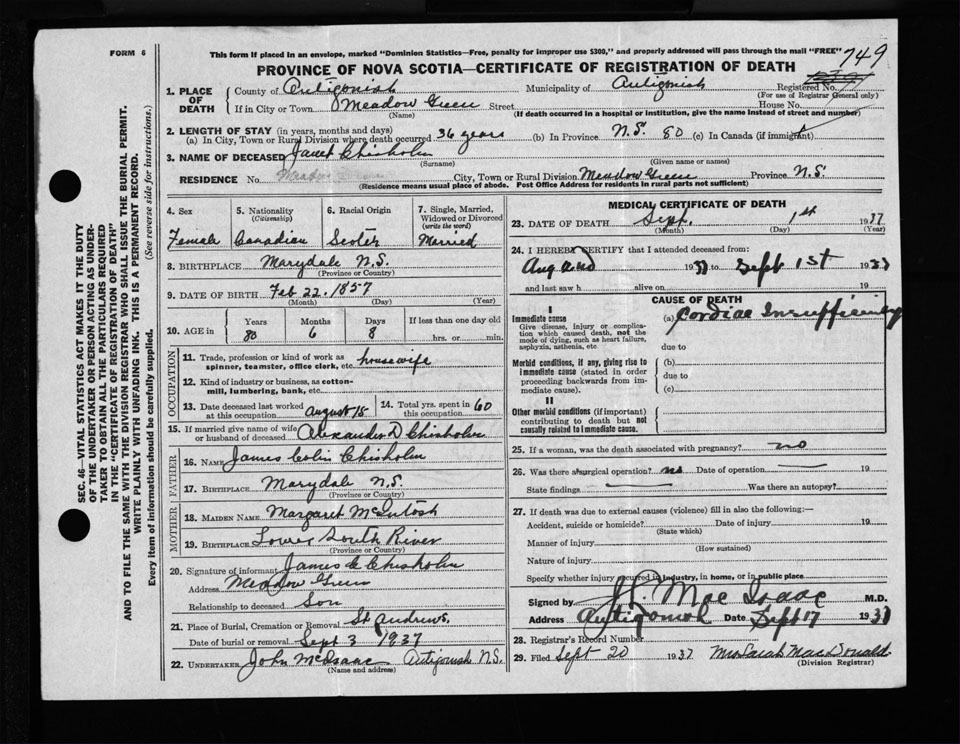 FORM 6
This form if placed in an envelope, marked "Dominion Statistics—Free, penalty for improper use $300," and properly addressed will pass through the mail "FREE"
749
PROVINCE OF NOVA SCOTIA—CERTIFICATE OF REGISTRATION OF DEATH
Registered No.
(For use of Registrar General only)
1. PLACE OF DEATH
County of Antigonish Municipality of Antigonish
If in City or Town Meadow Green Street House No.
(Name) (If death occurred in a hospital or institution, give the name instead of street and number)
2. LENGTH OF STAY (in years, months and days)
(a) In City, Town or Rural Division where death occurred 36 years (b) In Province N.S. 80 (c) In Canada (if immigrant)
3. NAME OF DECEASED Janet Chisholm
(Surname) (Given name or names)
RESIDENCE No. City, Town or Rural Division Meadow Green Province N.S.
(Residence means usual place of abode. Post Office Address for residents in rural parts not sufficient)
4. Sex Female
5. Nationality (Citizenship) Canadian
6. Racial Origin Scotch
7. Single, Married, Widowed or Divorced (write the word) Married
8. BIRTHPLACE Marydale N.S.
(Province or Country)
9. DATE OF BIRTH Feb 22. 1857
(Month) (Day) (Year)
10. AGE in Years Months Days If less than one day old
80 6 8 hrs. or min.
OCCUPATION
11. Trade, profession or kind of work as spinner, teamster, office clerk, etc. housewife
12. Kind of industry or business, as cotton-mill, lumbering, bank, etc.
13. Date deceased last worked at this occupation August 18
14. Total yrs. spent in this occupation 60
15. If married give name of wife or husband of deceased Alexander D Chisholm
FATHER
16. NAME James Colin Chisholm
17. BIRTHPLACE Marydale N.S.
(Province or Country)
MOTHER
18. MAIDEN NAME Margaret McIntosh
19. BIRTHPLACE Lower South River
(Province or Country)
20. Signature of informant James C Chisholm
Address Meadow Green
Relationship to deceased Son
21. Place of Burial, Cremation or Removal St Andrews,
Date of burial or removal Sept 3 1937
22. UNDERTAKER John McIsaac Antigonish N.S.
(Name and address)
MEDICAL CERTIFICATE OF DEATH
23. DATE OF DEATH Sept. 1st 1937
(Month) (Day) (Year)
24. I HEREBY CERTIFY that I attended deceased from:
Aug 1937 to Sept 1st 1937
and last saw h alive on 19
CAUSE OF DEATH
I
Immediate cause (a) Cardiac Insufficiency
Give disease, injury or complication which caused death, not the mode of dying, such as heart failure, asphyxia, asthenia, etc.
due to
Morbid conditions, if any, giving rise to immediate cause (stated in order proceeding backwards from immediate cause).
(b)
due to
(c)
II
Other morbid conditions (if important) contributing to death but not causally related to immediate cause.
25. If a woman, was the death associated with pregnancy? no
26. Was there a surgical operation? no Date of operation 19
State findings Was there an autopsy?
27. If death was due to external causes (violence) fill in also the following:—
Accident, suicide or homicide? Date of injury 19
(State which)
Manner of injury
(How sustained)
Nature of injury
Specify whether injury occurred in industry, in home, or in public place
Signed by J.P. Mac Isaac M.D.
Address Antigonish Date Sept 17 1937
28. Registrar's Record Number
29. Filed Sept 20 1937 Mrs Sarah MacDonald
(Division Registrar)
SEC. 46—VITAL STATISTICS ACT MAKES IT THE DUTY
OF THE UNDERTAKER OR PERSON ACTING AS UNDER-
TAKER TO OBTAIN ALL THE PARTICULARS REQUIRED
IN THE "CERTIFICATE OF REGISTRATION OF DEATH"
AND TO FILE THE SAME WITH THE DIVISION REGISTRAR WHO SHALL ISSUE THE BURIAL PERMIT.
WRITE PLAINLY WITH UNFADING INK. THIS IS A PERMANENT RECORD.
Every item of information should be carefully supplied. (See reverse side for instructions.)